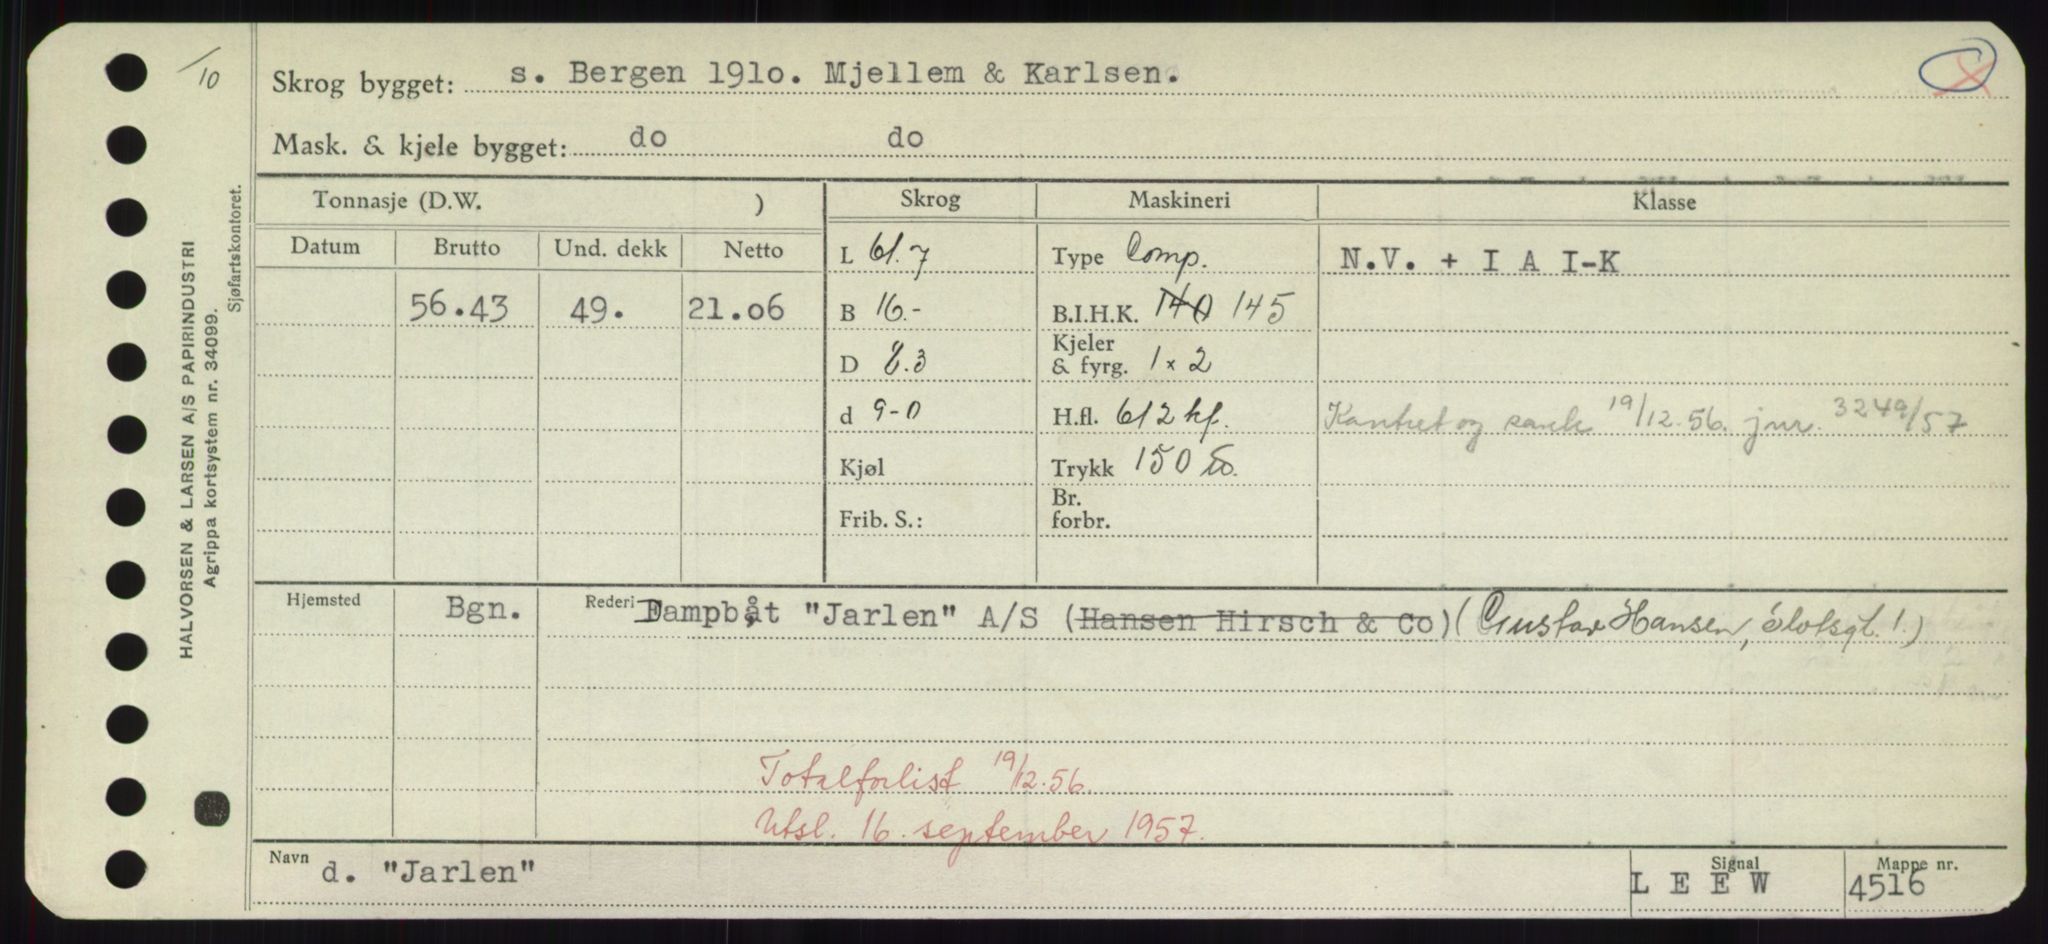 /10
Skrog bygget: s. Bergen 191o. Mjellem & Karlsen.
Mask. & kjele bygget: do do
HALVORSEN & LARSEN A/S PAPIRINDUSTRI
Agrippa kortsystem nr. 34099.
Sjøfartskontoret.
Tonnasje (D.W. ) Skrog Maskineri Klasse
Datum Brutto Und. dekk Netto
L 61.7 Type Comp. N.V. + I A I-K
56.43 49. 21.o6 B 16.- B.I.H.K. 140 145
D 8.3 Kjeler & fyrg. 1 x 2
d 9-0 H.fl. 612 kf. Kantret og sank 19/12.56. jnr. 3249/57
Kjøl Trykk 150
Frib. S.: Br. forbr.
Hjemsted Bgn. Rederi Dampbåt "Jarlen" A/S (Hansen Hirsch & Co) (Gustav Hansen, Slotsgt. 1.)
Totalforlist 19/12.56.
Utsl. 16. september 1957.
Navn d. "Jarlen" Signal L E E W Mappe nr. 4516